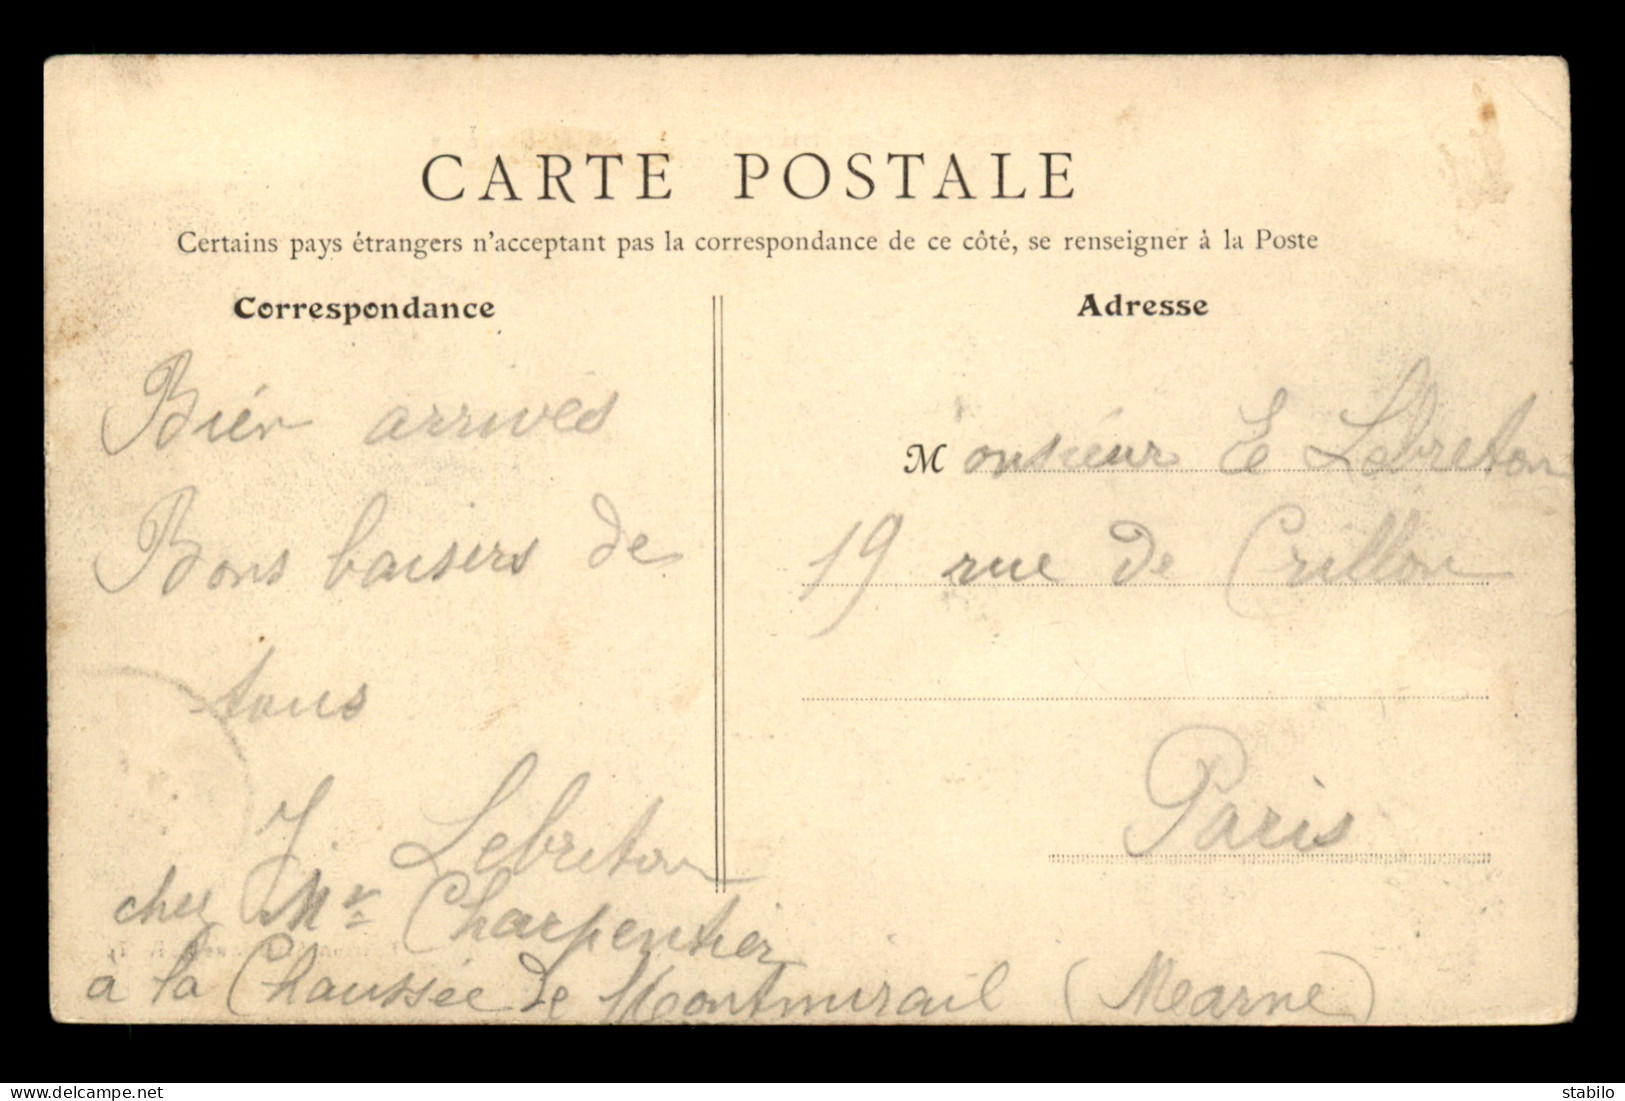 CARTE POSTALE
Certains pays étrangers n'acceptant pas la correspondance de ce côté, se renseigner à la Poste
Correspondance
Bien arrivés
Bons baisers de
tous
J. Lebreton
chez Mr Charpentier
à la Chaussée de Montmirail (Marne)
Adresse
Monsieur E Lebreton
19 rue de Crillon
Paris
stabilo